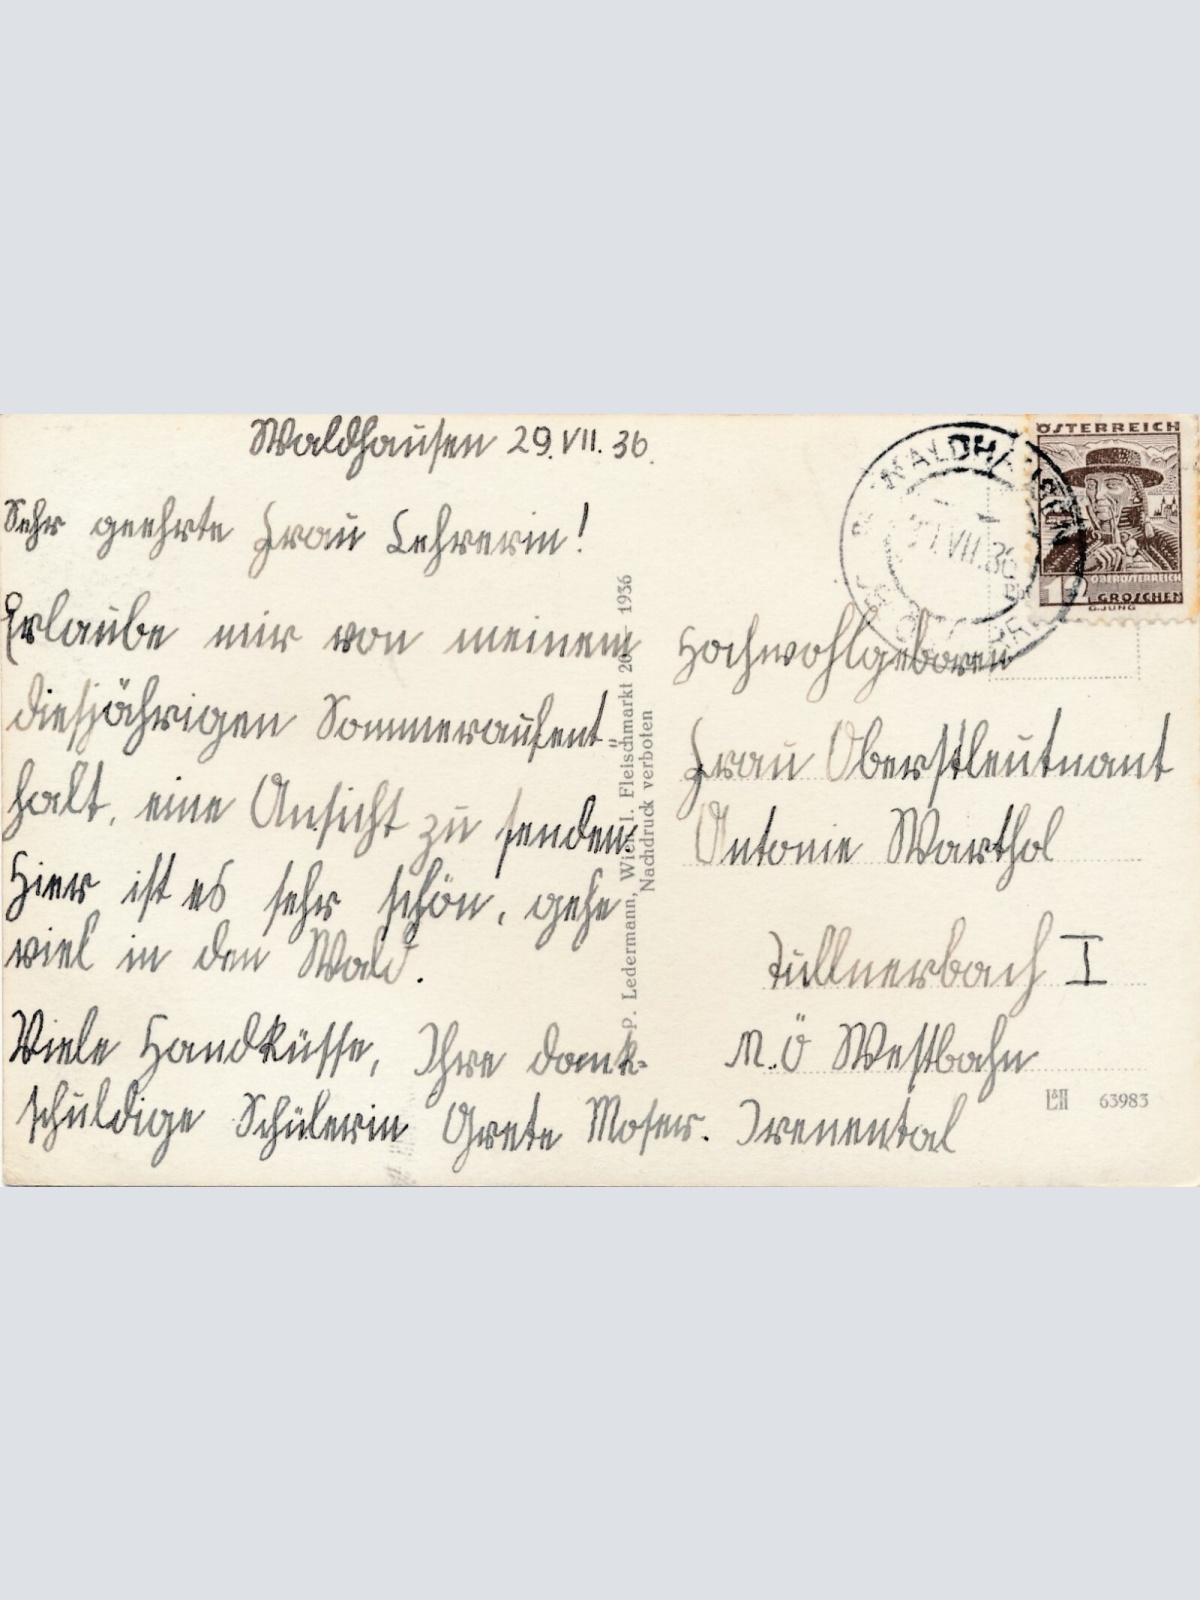 Waldhausen 29.VII.36.
Sehr geehrte Frau Lehrerin!
Erlaube mir von meinem
diesjährigen Sommeraufent-
halt, eine Ansicht zu senden.
Hier ist es sehr schön, gehe
viel in den Wald.
Viele Handküsse, Ihre dank-
schuldige Schülerin Grete Moser.
P. Ledermann, Wien I. Fleischmarkt 20 1936
Nachdruck verboten
WALDHAUSEN
VII.36
ÖSTERREICH
OBERÖSTERREICH
GROSCHEN
G.JUNG
Hochwohlgeboren
Frau Oberstleutnant
Antonie Warthol
Tullnerbach I
N.Ö Westbahn
Irenental
63983